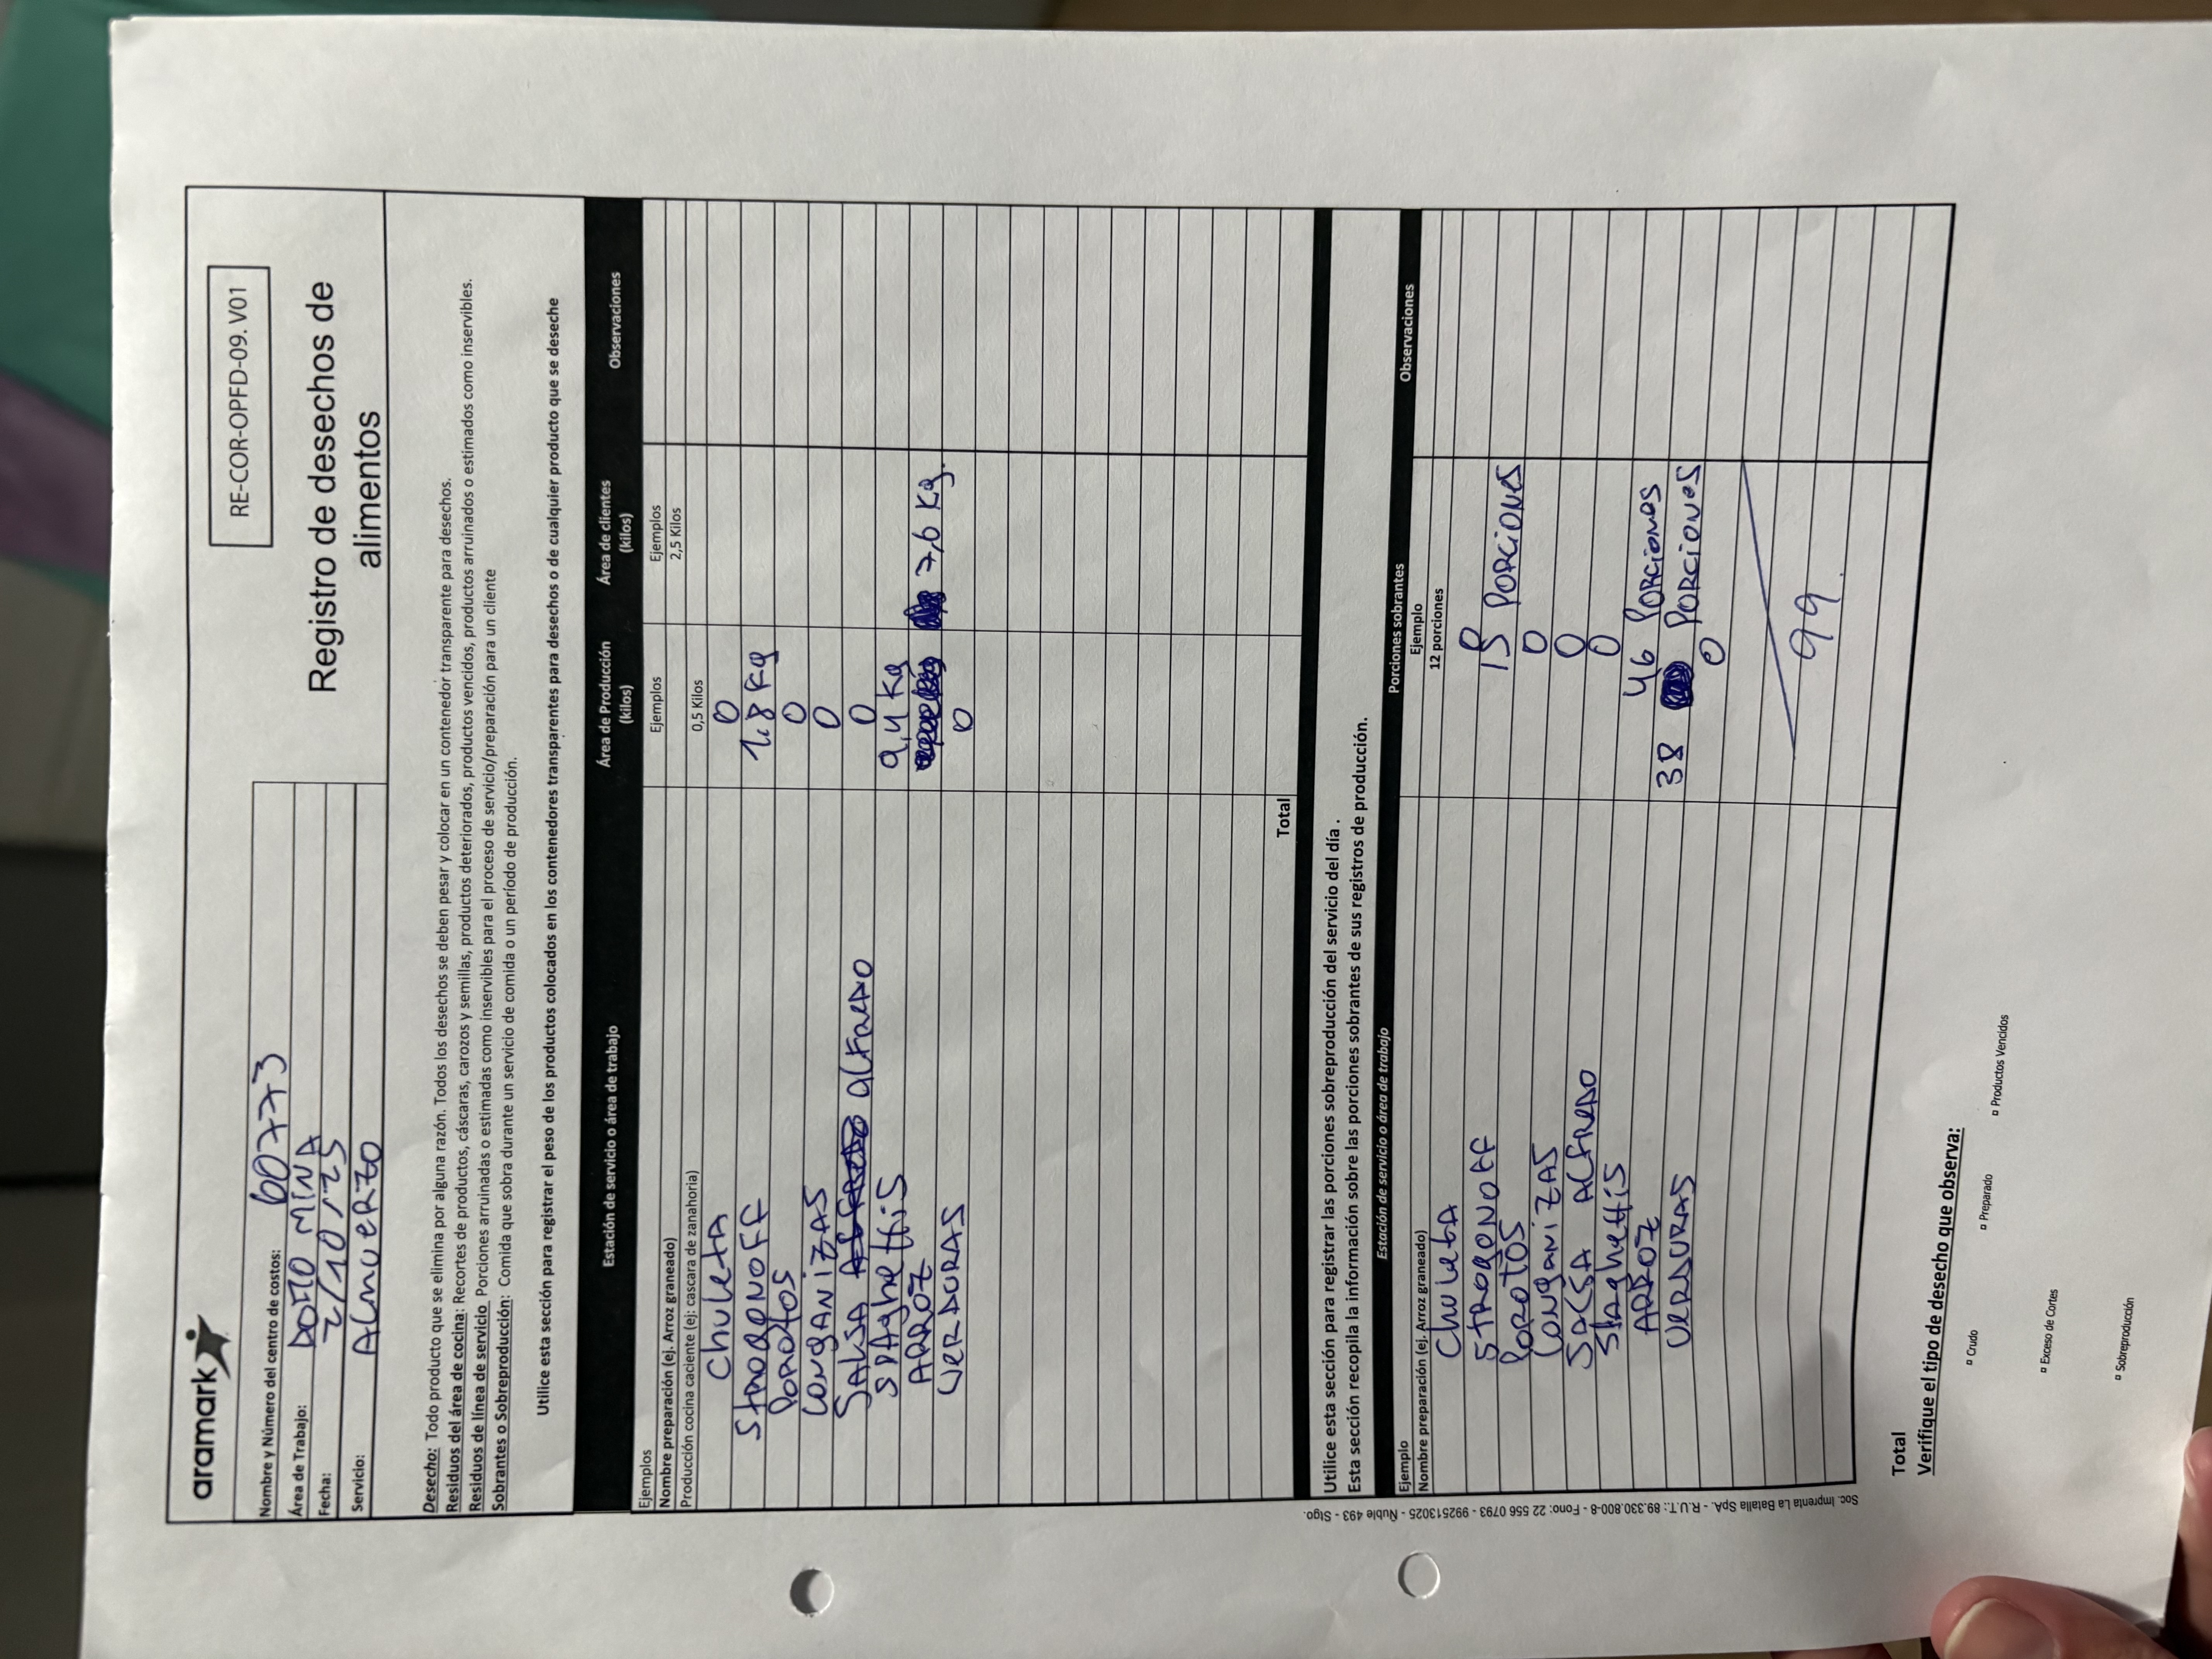 aramark
RE-COR-OPFD-09. V01
Registro de desechos de
alimentos
Nombre y Número del centro de costos: 60773
Área de Trabajo: DOFIO MINA
Fecha: 2/10/25
Servicio: ALmuERZO
Desecho: Todo producto que se elimina por alguna razón. Todos los desechos se deben pesar y colocar en un contenedor transparente para desechos.
Residuos del área de cocina: Recortes de productos, cáscaras, carozos y semillas, productos deteriorados, productos vencidos, productos arruinados o estimados como inservibles.
Residuos de línea de servicio Porciones arruinadas o estimadas como inservibles para el proceso de servicio/preparación para un cliente
Sobrantes o Sobreproducción: Comida que sobra durante un servicio de comida o un período de producción.
Utilice esta sección para registrar el peso de los productos colocados en los contenedores transparentes para desechos o de cualquier producto que se deseche
Estación de servicio o área de trabajo Área de Producción (kilos) Área de clientes (kilos) Observaciones
Ejemplos Ejemplos Ejemplos
Nombre preparación (ej. Arroz graneado) 2,5 Kilos
Producción cocina caciente (ej: cascara de zanahoria) 0,5 Kilos
ChuletA 0
StrogoNoFF 1.8 Kg
PorotOS 0
LongANiZAS 0
SALSA ALFREDO 0
SPAghettiS 9,4 Kg
ARROZ 7,6 Kg.
VERDURAS 0
Total
Utilice esta sección para registrar las porciones sobreproducción del servicio del día .
Esta sección recopila la información sobre las porciones sobrantes de sus registros de producción.
Estación de servicio o área de trabajo Porciones sobrantes Observaciones
Ejemplo Ejemplo
Nombre preparación (ej. Arroz graneado) 12 porciones
ChuletA 0
StrogoNOFF 15 PORCiONES
PorotOS 0
LONgANiZAS 0
SALSA ALFREDO 0
SPaghettiS 46 PORCiones
ARROZ 38 PORCiONeS
VERDURAS 0
99.
Total
Verifique el tipo de desecho que observa:
Crudo Preparado Productos Vencidos
Exceso de Cortes
Sobreproducción
Soc. Imprenta La Batalla SpA. - R.U.T.: 89.330.800-8 - Fono: 22 556 0793 - 992513025 - Ñuble 493 - Stgo.